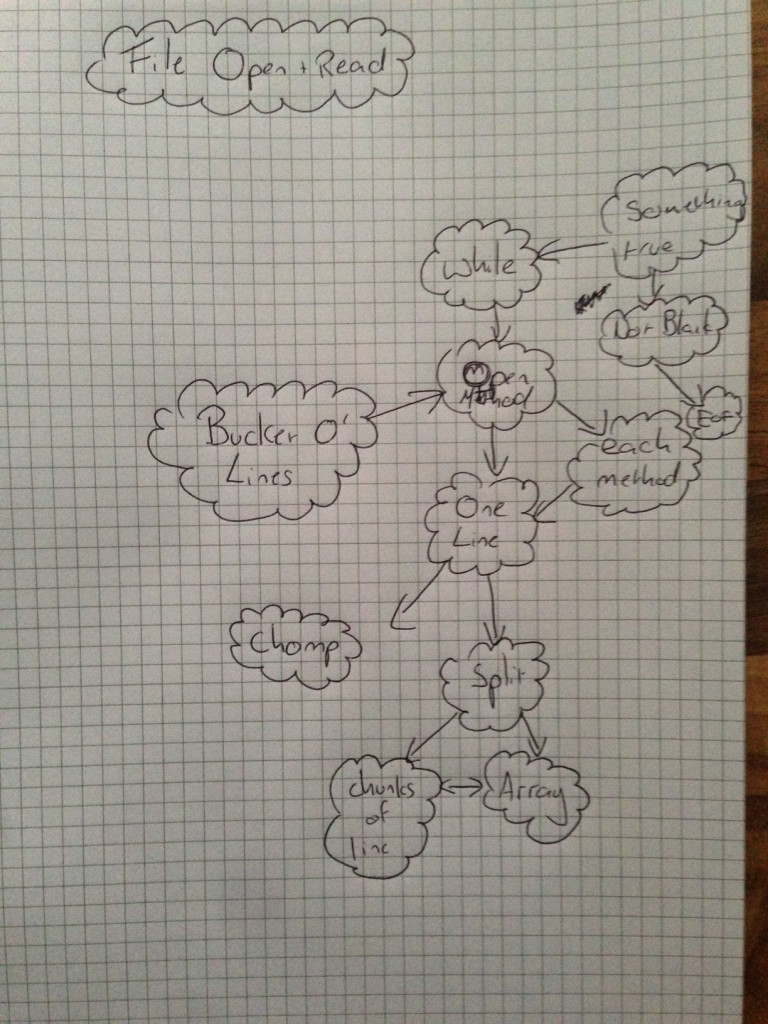 File Open + Read
Something
true
While
Not Blank
Open
Method
Eof
Bucket O'
Lines
each
method
One
Line
Chomp
Split
chunks
of
line
Array